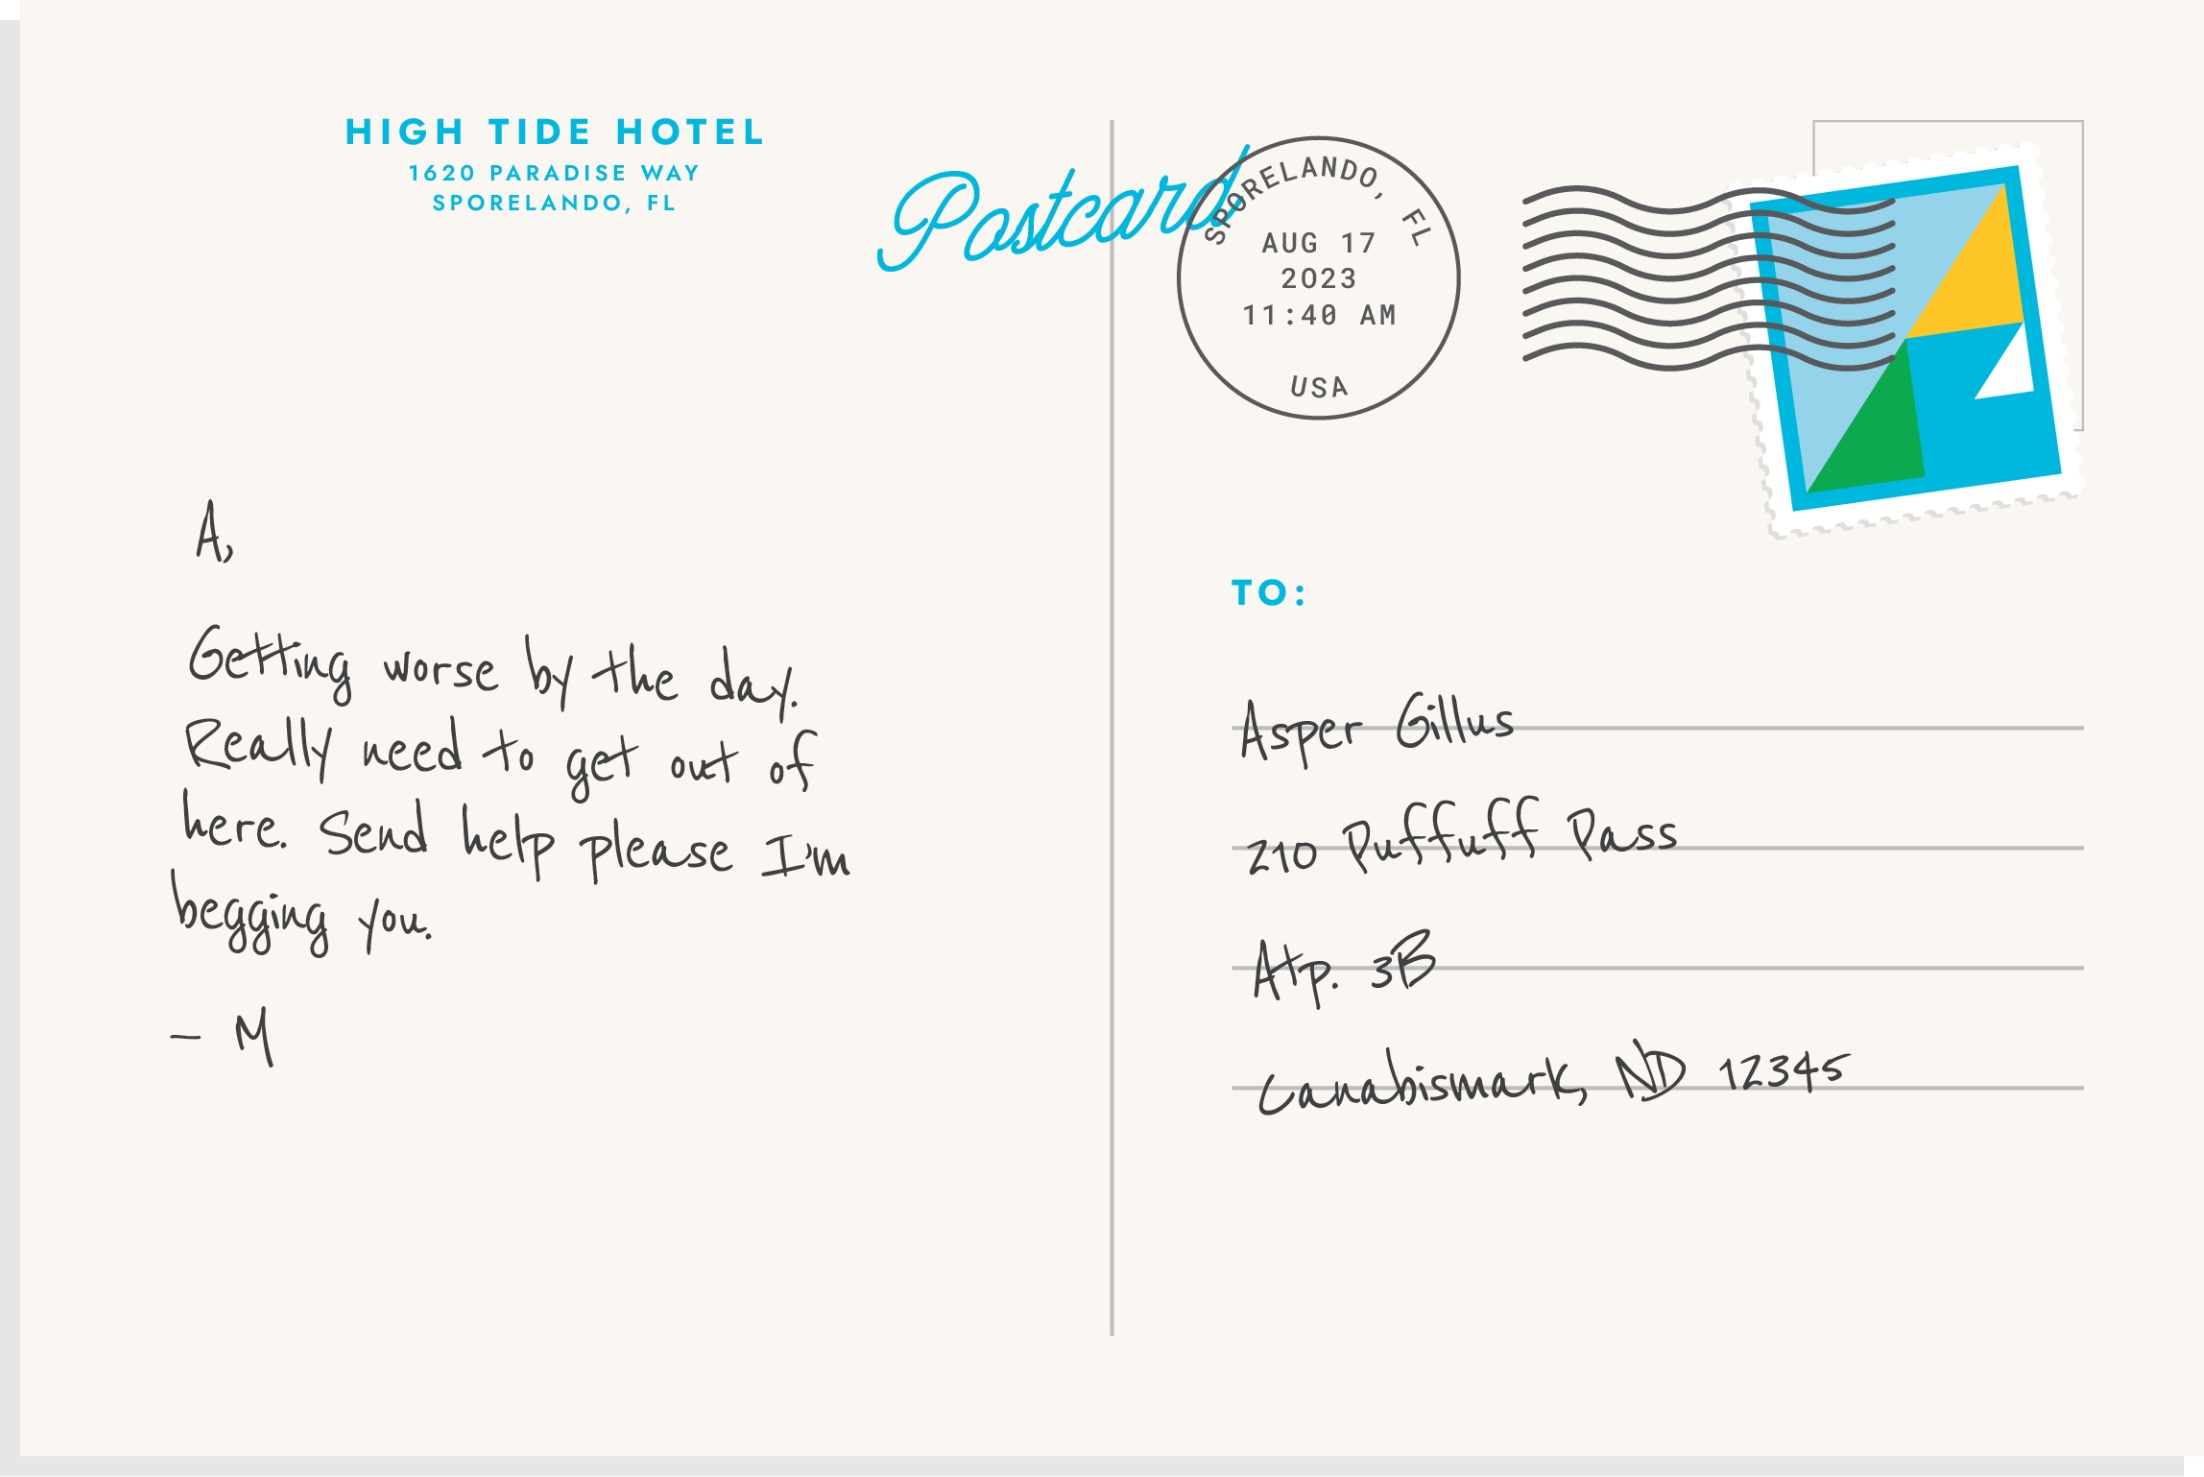 HIGH TIDE HOTEL
1620 PARADISE WAY
SPORELANDO, FL
Postcard
SPORELANDO, FL
AUG 17
2023
11:40 AM
USA
A,
Getting worse by the day.
Really need to get out of
here. Send help please I'm
begging you.
– M
TO:
Asper Gillus
210 Puffuff Pass
Atp. 3B
Canabismark, ND 12345